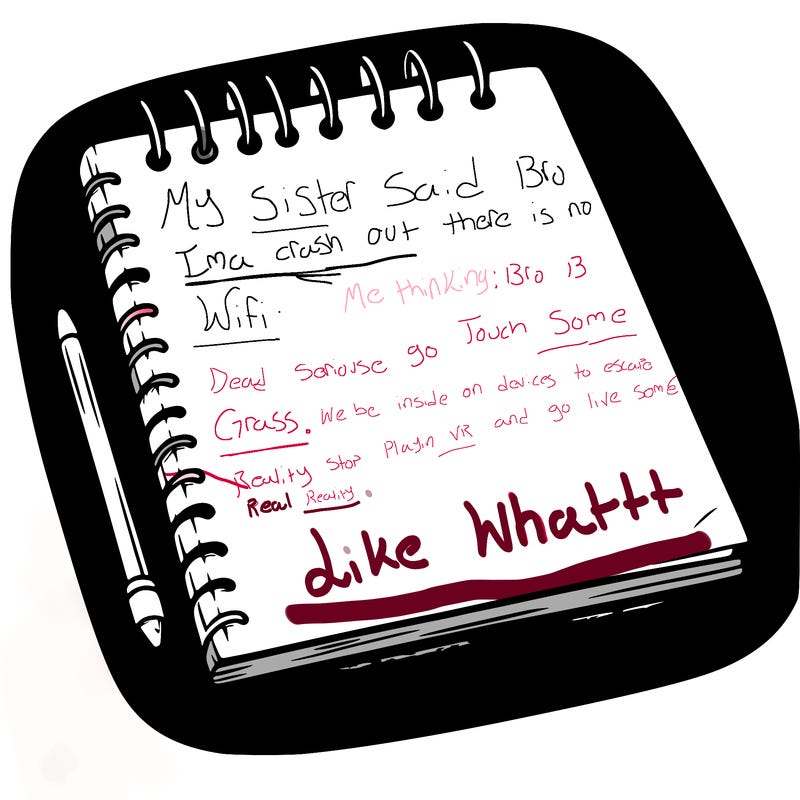 My Sister Said Bro
Ima crash out there is no
Wifi. Me thinking: Bro B
Dead Seriouse go Touch Some
Grass. We be inside on devices to escape
Reality Stop Playin VR and go live some
Real Reality.
Like Whattt